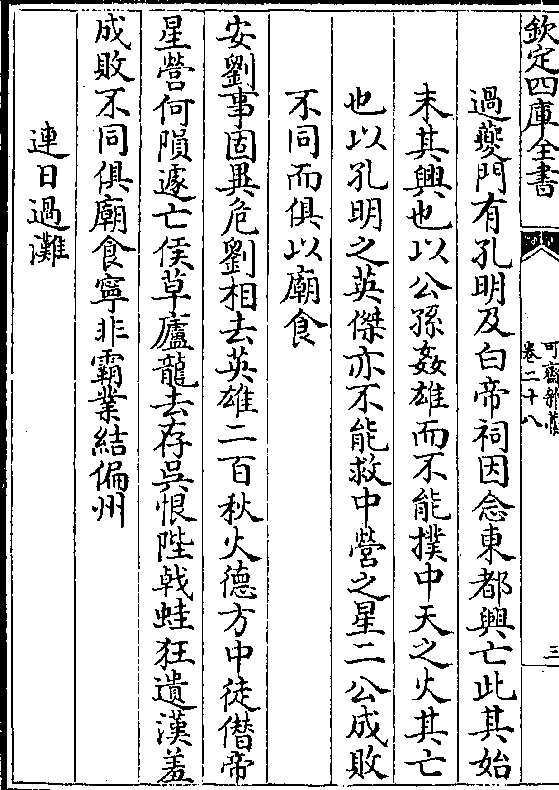 欽定四庫全書
可齋雜藁
卷二十八
三
過夔門有孔明及白帝祠因念東都興亡此其始
末其興也以公孫姦雄而不能撲中天之火其亡
也以孔明之英傑亦不能救中營之星二公成敗
不同而俱以廟食
安劉事固異危劉相去英雄二百秋火德方中徒僭帝
星營何隕遽亡侯草廬龍去存吳恨陛戟蛙狂遺漢羞
成敗不同俱廟食寧非霸業結偏州
連日過灘